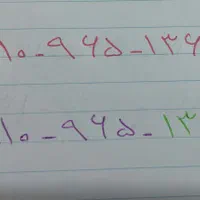 ۱۰-۹۶۵-۱۳۶
۱۰-۹۶۵-۱۳